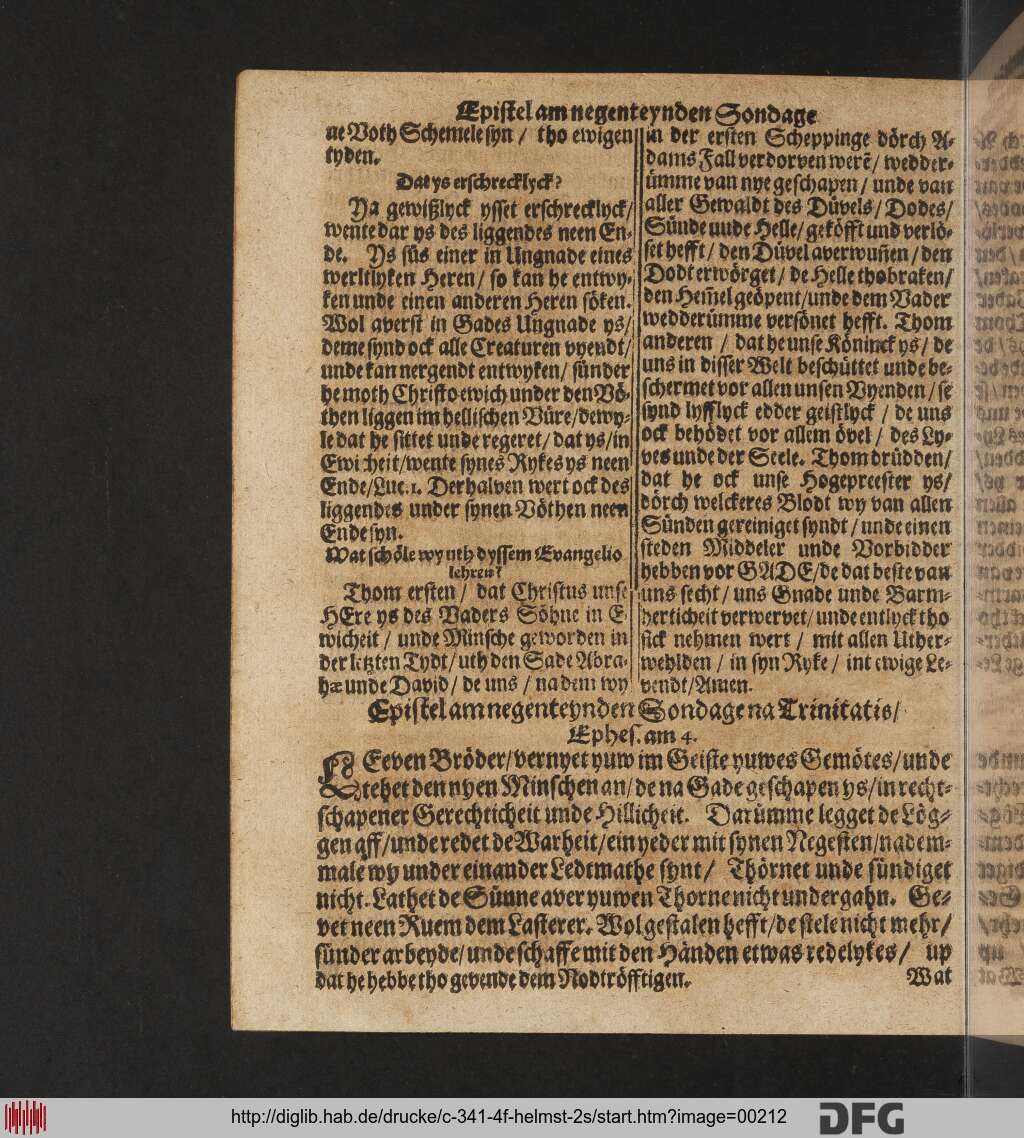 Epistel am negenteynden Sondage
ne Voth Schemele syn / tho ewigen
tyden.
Dat ys erschrecklyck?
Ya gewißlyck ysset erschrecklyck/
wente dar ys des liggendes neen En-
de. Ys süs einer in Ungnade eines
werltlyken Heren / so kan he entwy-
ken unde einen anderen Heren söken.
Wol averst in Gades Ungnade ys/
deme synd ock alle Creaturen vyendt/
unde kan nergendt entwyken / sünder
he moth Christo ewich under den Vö-
then liggen im hellischen Vüre / dewy-
le dat he sittet unde regeret / dat ys / in
Ewicheit / wente synes Rykes ys neen
Ende / Luc. 1. Derhalven wert ock des
liggendes under synen Vöthen neen
Ende syn.
Wat schöle wy uth dyssem Evangelio
lehren?
Thom ersten / dat Christus unse
HEre ys des Vaders Söhne in E-
wicheit / unde Minsche geworden in
der letzten Tydt / uth den Sade Abra-
hæ unde David / de uns / na dem wy
in der ersten Scheppinge dörch A-
dams Fall verdorven werē / wedder-
ümme van nye geschapen / unde van
aller Gewaldt des Düvels / Dodes /
Sünde uude Helle / geköfft und verlö-
set hefft / den Düvel averwuñen / den
Dodt erwörget / de Helle thobraken /
den Hem̃el geöpent / unde dem Vader
wedderümme versönet hefft. Thom
anderen / dat he unse Köninck ys / de
uns in disser Welt beschüttet unde be-
schermet vor allen unsen Vyenden / se
synd lyfflyck edder geistlyck / de uns
ock behödet vor allem övel / des Ly-
ves unde der Seele. Thom drüdden /
dat he ock unse Hogepreester ys /
dörch welckeres Blodt wy van allen
Sünden gereiniget syndt / unde einen
steden Middeler unde Vorbidder
hebben vor GADE / de dat beste van
uns secht / uns Gnade unde Barm-
herticheit verwervet / unde entlyck tho
sick nehmen wert / mit allen Uther-
wehlden / in syn Ryke / int ewige Le-
vendt / Amen.
Epistel am negenteynden Sondage na Trinitatis /
Ephes. am 4.
LEeven Bröder / vernyet yuw im Geiste yuwes Gemötes / unde
tehet den nyen Minschen an / de na Gade geschapen ys / in recht-
schapener Gerechticheit unde Hillicheit. Darümme legget de Lög-
gen aff / unde redet de Warheit / ein yeder mit synen Negesten / nadem-
male wy under einander Ledtmathe synt / Thörnet unde sündiget
nicht. Lathet de Sünne aver yuwen Thorne nicht undergahn. Ge-
vet neen Ruem dem Lasterer. Wol gestalen hefft / de stele nicht mehr /
sünder arbeyde / unde schaffe mit den Händen etwas redelykes / up
dat he hebbe tho gevende dem Nodtröfftigen.
Wat
http://diglib.hab.de/drucke/c-341-4f-helmst-2s/start.htm?image=00212
DFG